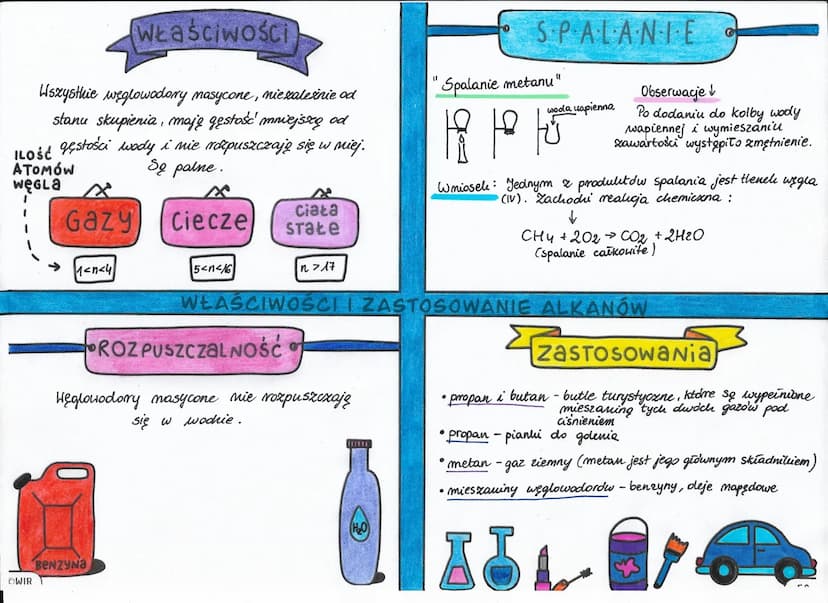 WŁAŚCIWOŚCI
Wszystkie węglowodory nasycone, niezależnie od
stanu skupienia, mają gęstość mniejszą od
gęstości wody i nie rozpuszczają się w niej.
Są palne.
ILOŚĆ
ATOMÓW
WĘGLA
GAZY
CIECZE
CIAŁA
STAŁE
1<n<4
5<n<16
n>17
SPALANIE
"Spalanie metanu"
woda wapienna
Obserwacje ↓
Po dodaniu do kolby wody
wapiennej i wymieszaniu
zawartości wystąpiło zmętnienie.
Wniosek: Jednym z produktów spalania jest tlenek węgla
(IV). Zachodzi reakcja chemiczna:
↓
CH4 + 2O2 → CO2 + 2H2O
(spalanie całkowite)
WŁAŚCIWOŚCI I ZASTOSOWANIE ALKANÓW
ROZPUSZCZALNOŚĆ
Węglowodory nasycone nie rozpuszczają
się w wodzie.
BENZYNA
H2O
ZASTOSOWANIA
• propan i butan - butle turystyczne, które są wypełnione
mieszaniną tych dwóch gazów pod
ciśnieniem
• propan - pianki do golenia
• metan - gaz ziemny (metan jest jego głównym składnikiem)
• mieszaniny węglowodorów - benzyny, oleje napędowe